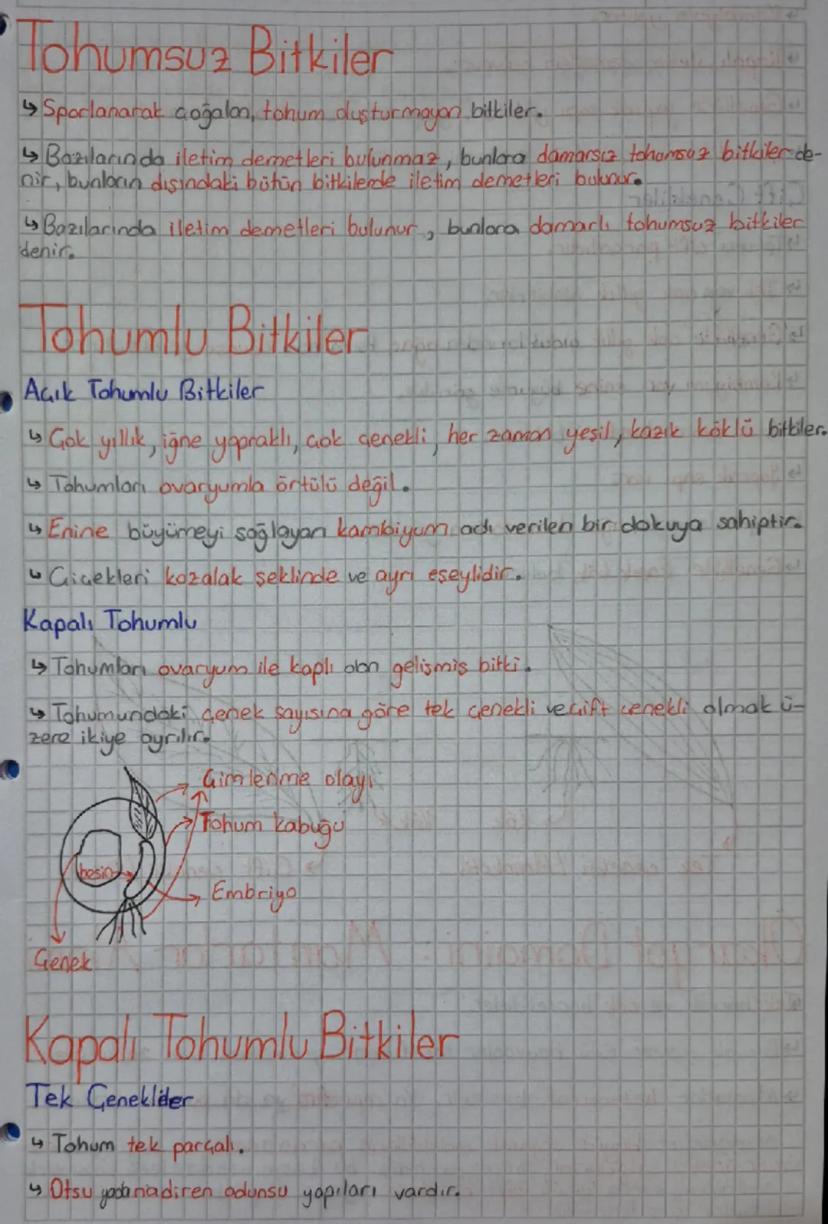 Tohumsuz Bitkiler
↳ Sporlanarak çoğalan, tohum oluşturmayan bitkiler.
↳ Bazılarında iletim demetleri bulunmaz, bunlara damarsız tohumsuz bitkiler de-
nir, bunların dışındaki bütün bitkilerde iletim demetleri bulunur.
↳ Bazılarında iletim demetleri bulunur, bunlara damarlı tohumsuz bitkiler
denir.
Tohumlu Bitkiler
Açık Tohumlu Bitkiler
↳ Çok yıllık, iğne yapraklı, çok çenekli, her zaman yeşil, kazık köklü bitkiler.
↳ Tohumları ovaryumla örtülü değil.
↳ Enine büyümeyi sağlayan kambiyum adı verilen bir dokuya sahiptir.
↳ Çiçekleri kozalak şeklinde ve ayrı eşeylidir.
Kapalı Tohumlu
↳ Tohumları ovaryum ile kaplı olan gelişmiş bitki.
↳ Tohumundaki çenek sayısına göre tek çenekli ve çift çenekli olmak ü-
zere ikiye ayrılır.
Çimlenme olayı
Tohum kabuğu
besin
Embriyo
Çenek
Kapalı Tohumlu Bitkiler
Tek Çenekliler
↳ Tohum tek parçalı.
↳ Otsu yada nadiren odunsu yapıları vardır.